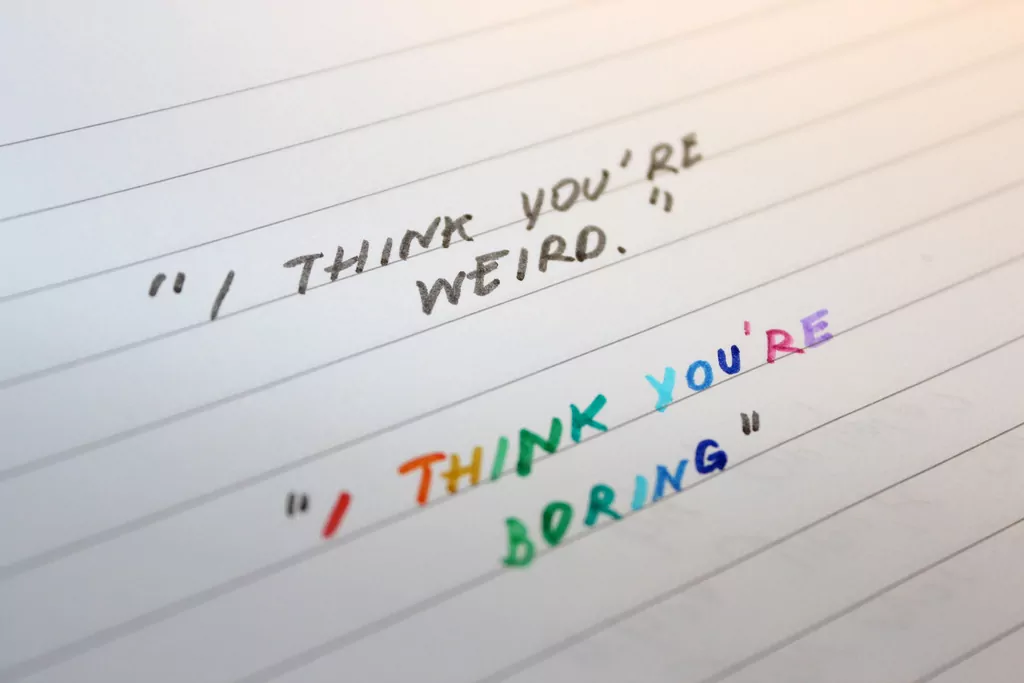 "I THINK YOU'RE
WEIRD."
"I THINK YOU'RE
BORING"